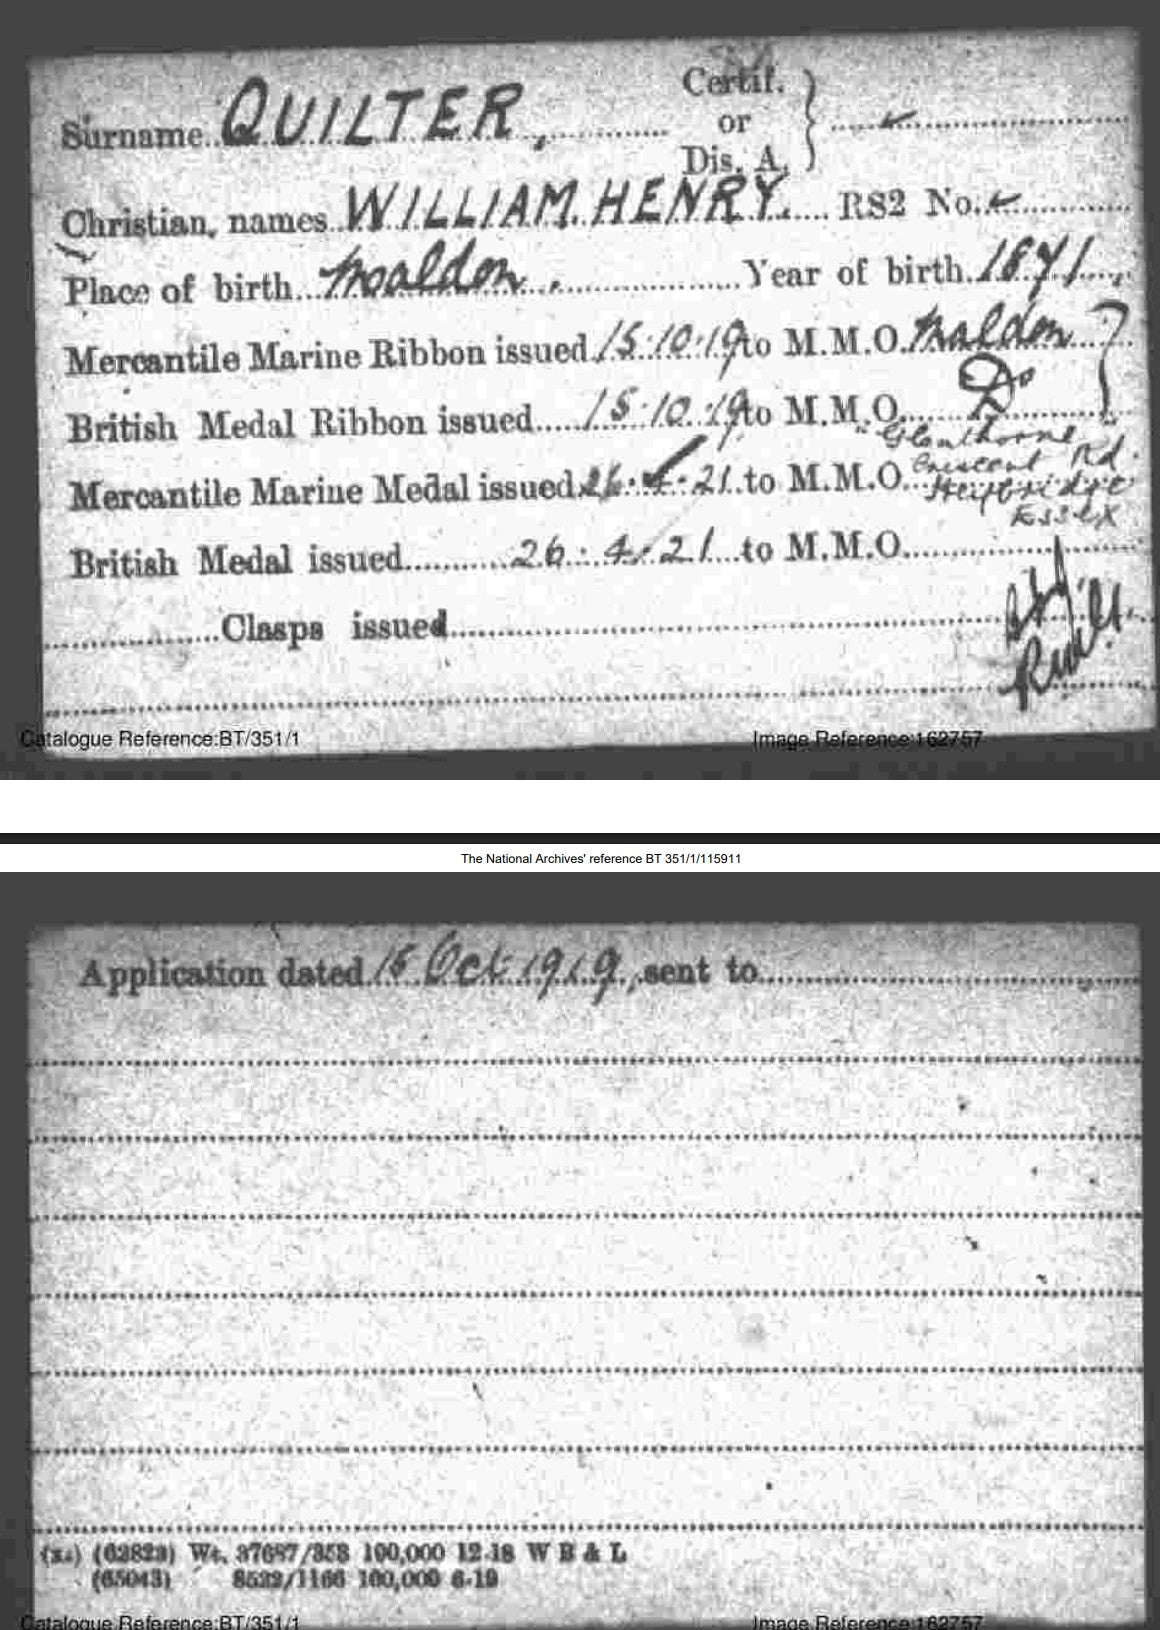 Certif.
Surname QUILTER, or
Dis. A.
Christian names WILLIAM HENRY RS2 No.
Place of birth Maldon. Year of birth 1871
Mercantile Marine Ribbon issued 15.10.19 to M.M.O. Maldon
British Medal Ribbon issued 15.10.19 to M.M.O. Do
"Glenthorne
Crescent Rd.
Mercantile Marine Medal issued 26.4.21 to M.M.O. Heybridge
Essex
British Medal issued 26.4.21 to M.M.O.
Clasps issued
Catalogue Reference:BT/351/1 Image Reference:162757
The National Archives' reference BT 351/1/115911
Application dated 15 Oct 1919, sent to
(62823) Wt. 37687/353 100,000 12-18 W B & L
(65043) 8532/1166 100,000 6-19
Catalogue Reference:BT/351/1 Image Reference:162757